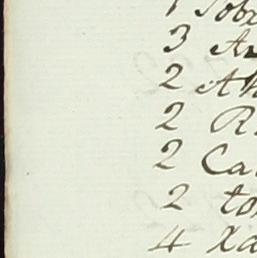 1 Tob
3 A
2 Ah
2 R
2 Ca
2 to
4 Xa